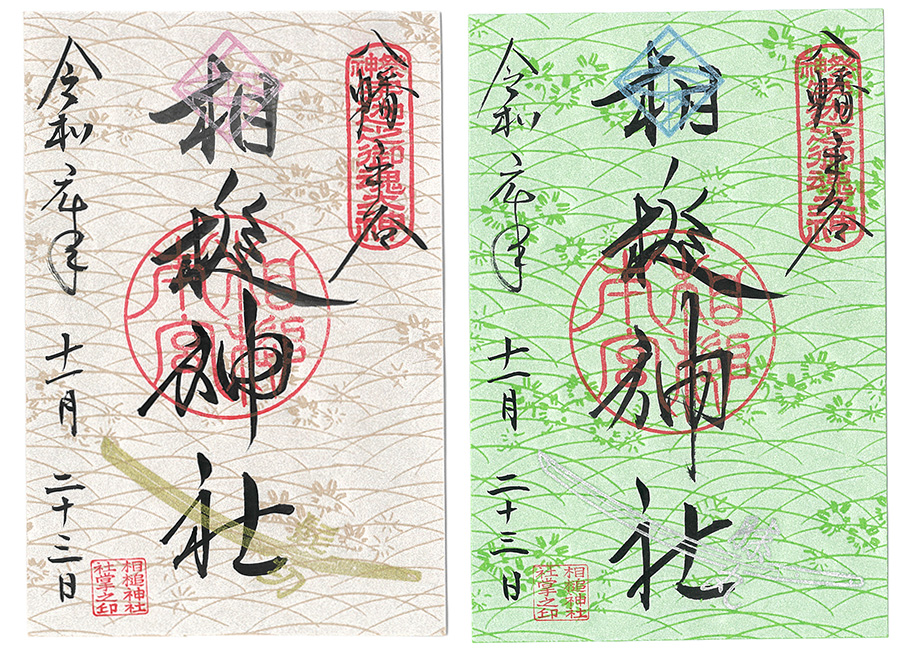 八幡平谷
相槌神社
相槌
本宮
令和元年 十一月 二十三日
相槌神社
社掌之印
八幡平谷
相槌神社
相槌
本宮
令和元年 十一月 二十三日
相槌神社
社掌之印